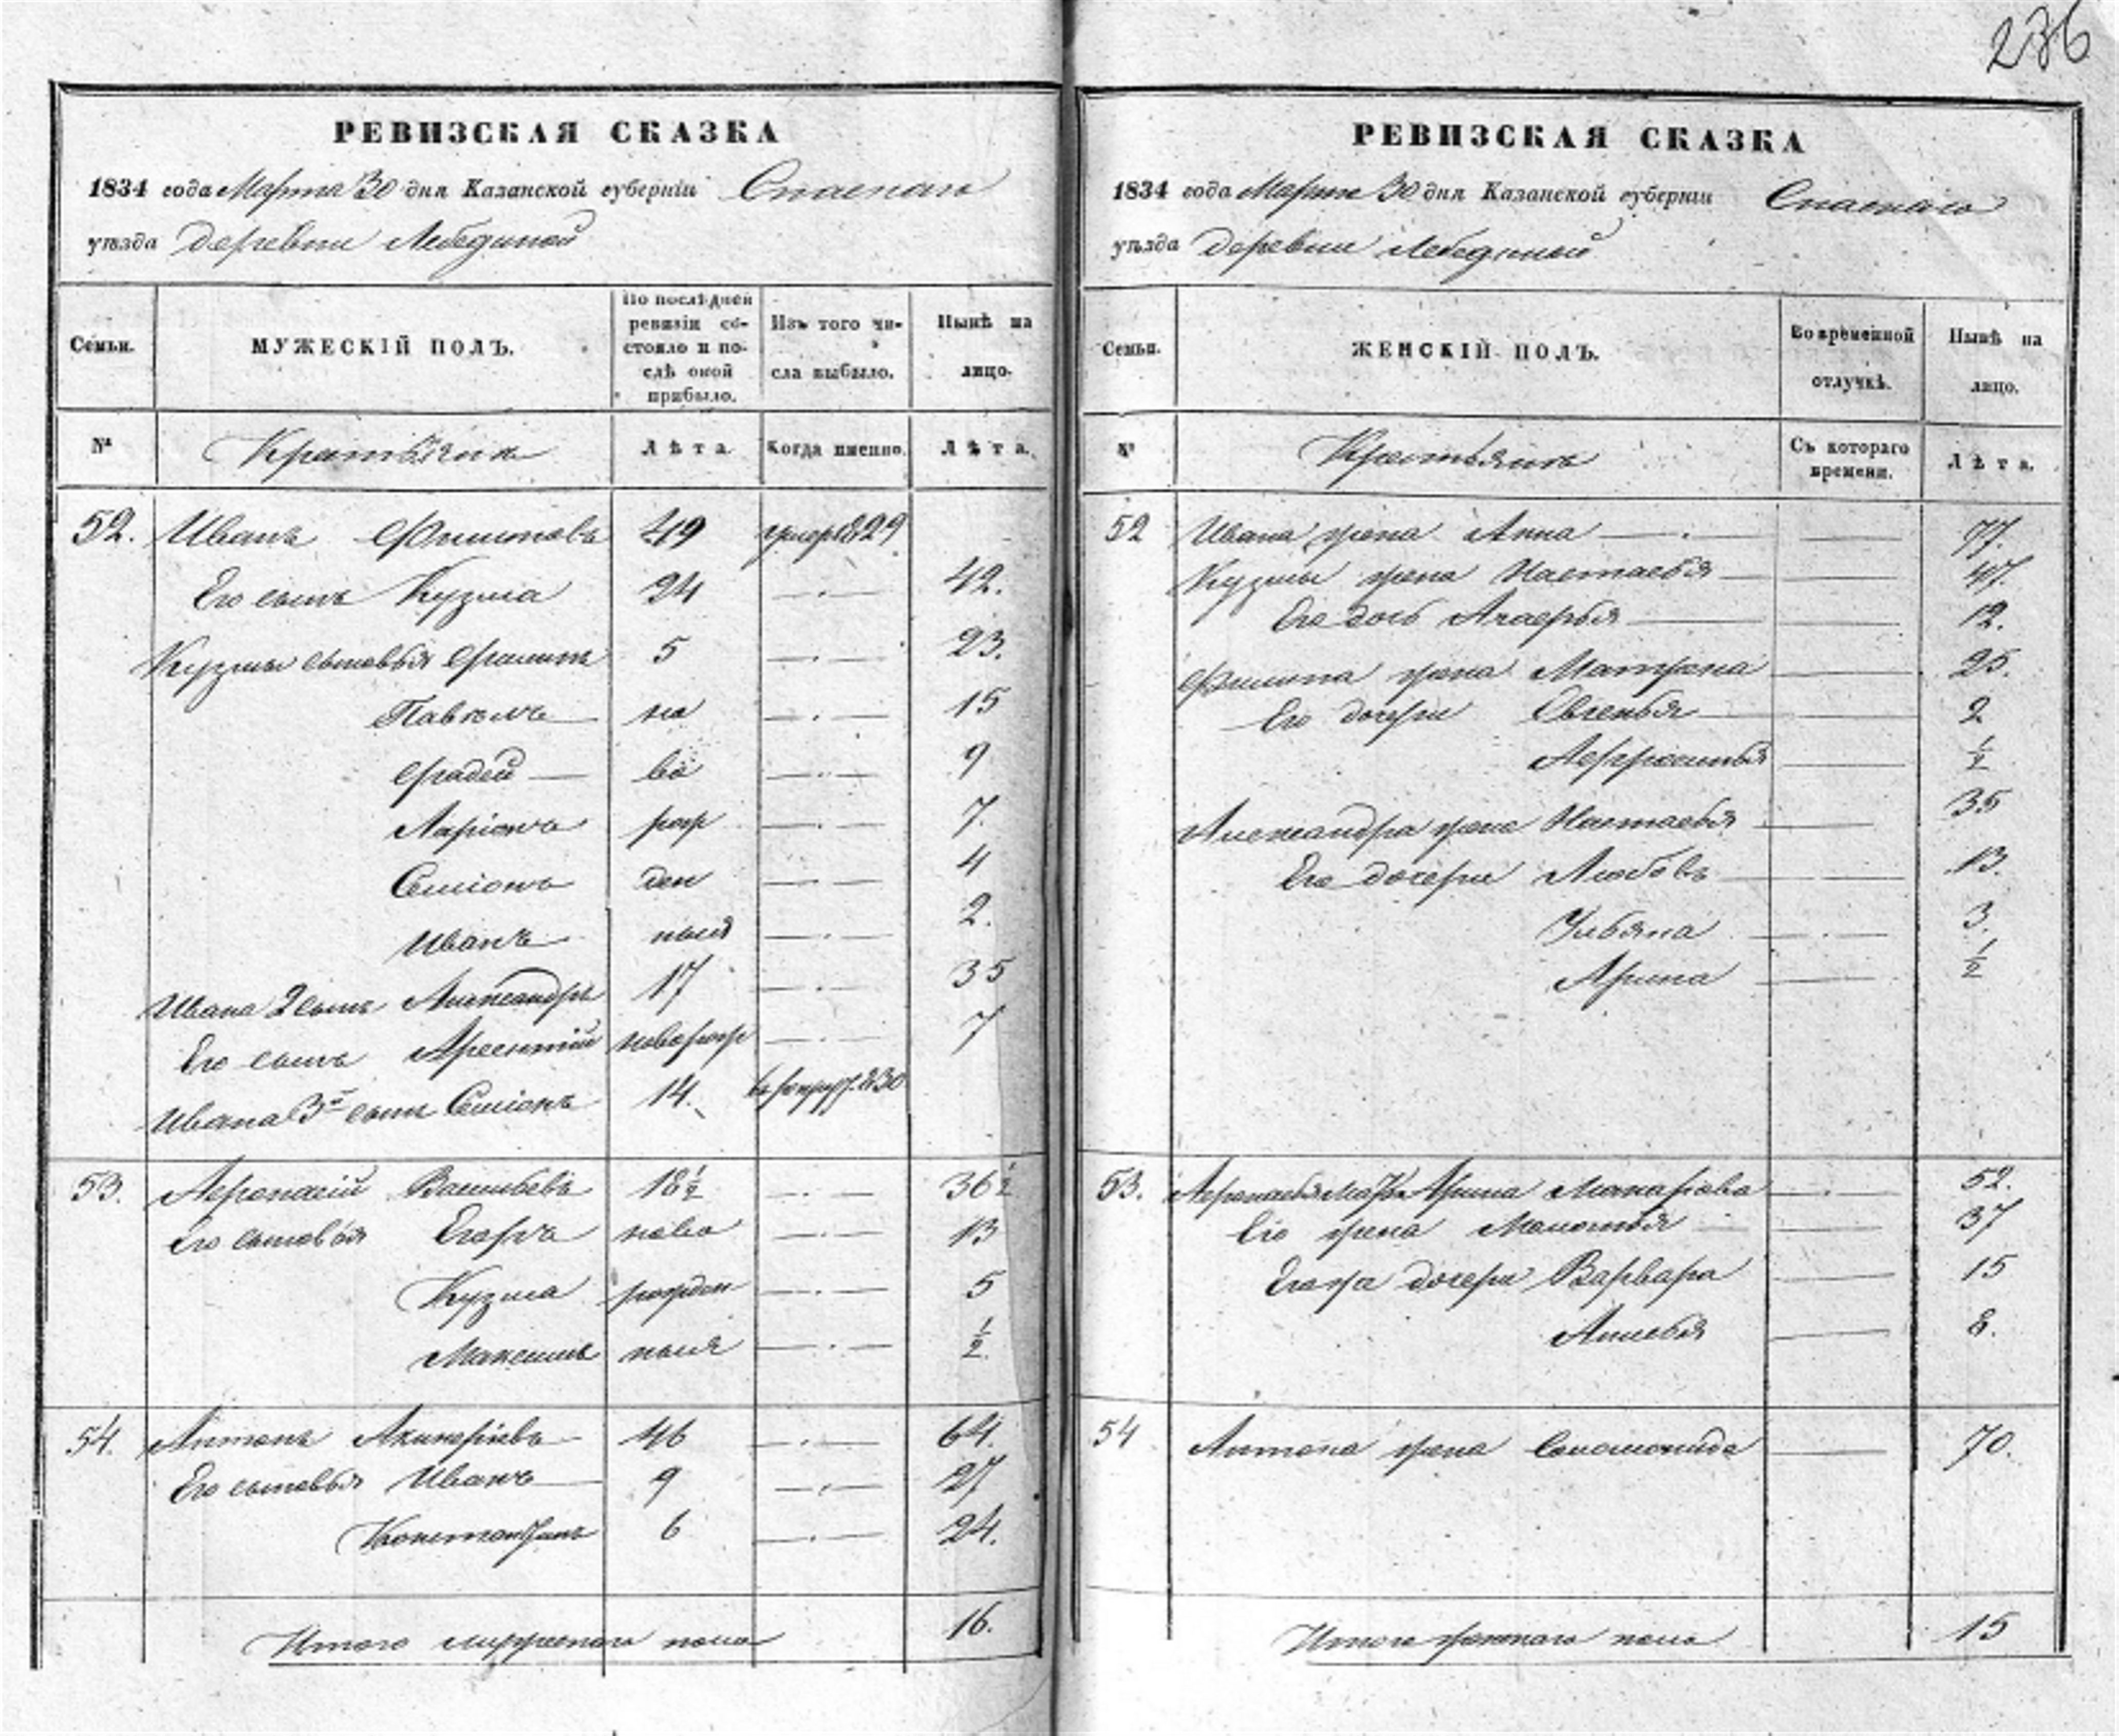 236
РЕВИЗСКАЯ СКАЗКА
1834 года Марта 30 дня Казанской губерніи Спаскаго
уѣзда деревни Лебединой
Семьи.
МУЖЕСКІЙ ПОЛЪ.
По послѣдней ревизіи состояло и послѣ оной прибыло.
Изъ того числа выбыло.
Нынѣ на лицо.
№
Крестьяне
Лѣта
Когда именно.
Лѣта.
52. Иванъ Филиповъ 49 829
Его сынъ Кузма 24 42.
Кузмы сыновья Филипъ 5 23.
Павелъ но 15
Фадей во 9
Ларіонъ рож 7.
Семіонъ ден 4
Иванъ ныя 2.
Ивана 2 сынъ Александръ 17 35
Его сынъ Арсентій новорож 7
Ивана 3й сынъ Семіонъ 14. 830
53. Афонасій Васильевъ 18 1/2 36 1/2
Его сыновья Егоръ ново 13
Кузма рожден 5
Максимъ ныя 1/2
54. Антонъ Акинфіевъ 46 64.
Его сыновья Иванъ 9 27
Константинъ 6 24.
Итого мужескаго пола 16.
РЕВИЗСКАЯ СКАЗКА
1834 года Марта 30 дня Казанской губерніи Спаскаго
уѣзда деревни Лебединой
Семьи.
ЖЕНСКІЙ ПОЛЪ.
Во временной отлучкѣ.
Нынѣ на лицо.
№
Крестьянъ
Съ котораго времени.
Лѣта.
52 Ивана жена Анна 77.
Кузмы жена Настасья 47.
Его дочь 12.
Филипа жена Матрена 25.
Его дочери Евгенья 2
1/2
Александра жена Настасья 35
Его дочери Любовь 13.
Ульяна 3.
Арина 1/2
53. Афонасья мать Арина Макарова 52.
Его жена 37
дочери Варвара 15
8.
54 Антона жена Соломонида 70.
Итого женскаго пола 15